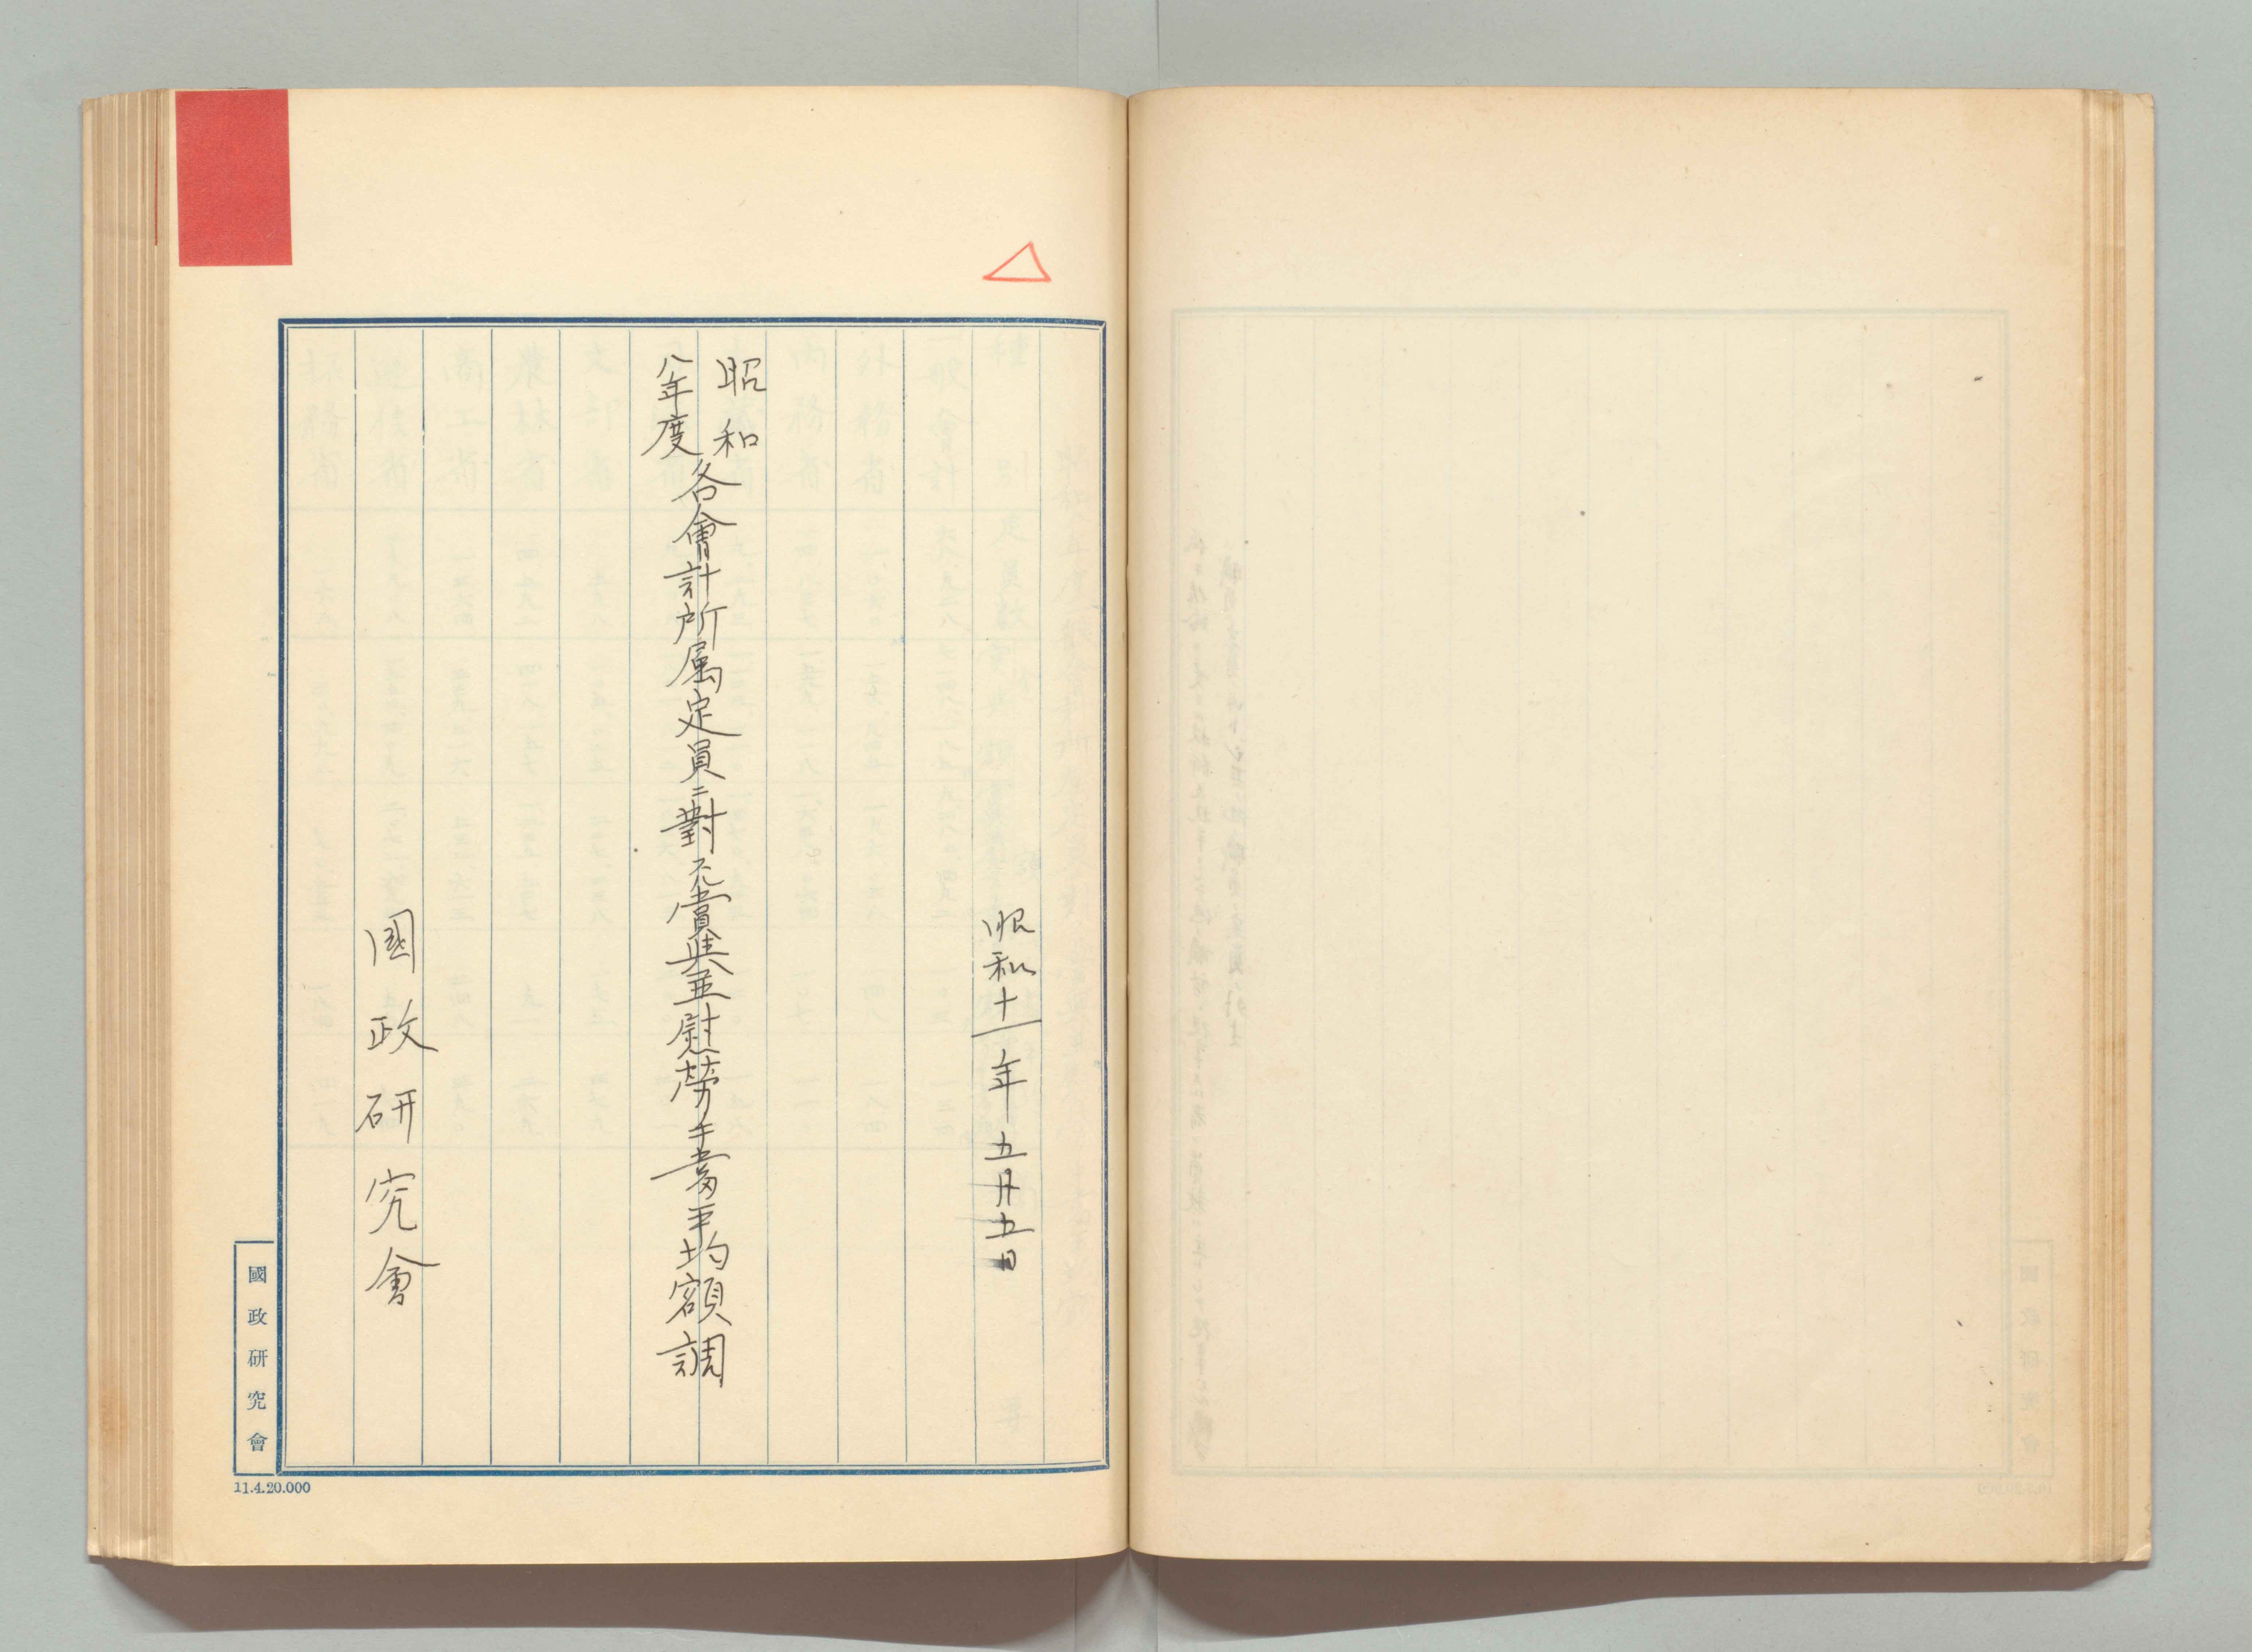 昭和十一年五月五日
昭和
八年度
各會計所属定員ニ對スル賞與並慰勞手當平均額調
國政研究會
國政研究會
11.4.20.000